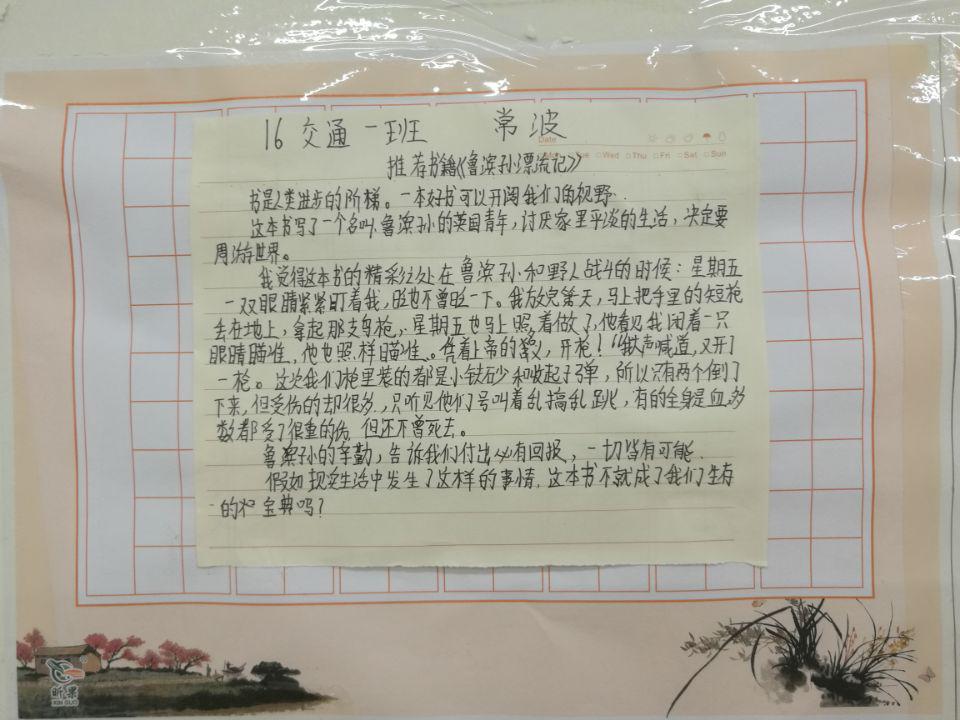 16 交通一班 常波
Date
Mon Tue Wed Thu Fri Sat Sun
推荐书籍《鲁滨孙漂流记》
书是人类进步的阶梯。一本好书可以开阔我们的视野.
这本书写了一个名叫鲁滨孙的英国青年，讨厌家里平淡的生活，决定要
周游世界。
我觉得这本书的精彩之处在鲁滨孙和野人战斗的时候：星期五
一双眼睛紧紧盯着我，眨也不曾眨一下。我放完第一，马上把手里的短枪
丢在地上，拿起那支鸟枪，星期五也马上照着做了，他看见我闭着一只
眼睛瞄准，他也照样瞄准。凭着上帝的，开枪！"我声喊道，又开了
一枪。这次我们枪里装的都是小铁砂和收起子弹，所以只有两个倒了
下来，但受伤的却很多，只听见他们号叫着乱搞乱跳，有的全身是血，多
数都受了很重的伤，但还不曾死去。
鲁滨孙的辛勤，告诉我们付出必有回报，一切皆有可能.
假如现实生活中发生了这样的事情，这本书不就成了我们生存
的宝典吗？
昕果
XIN GUO